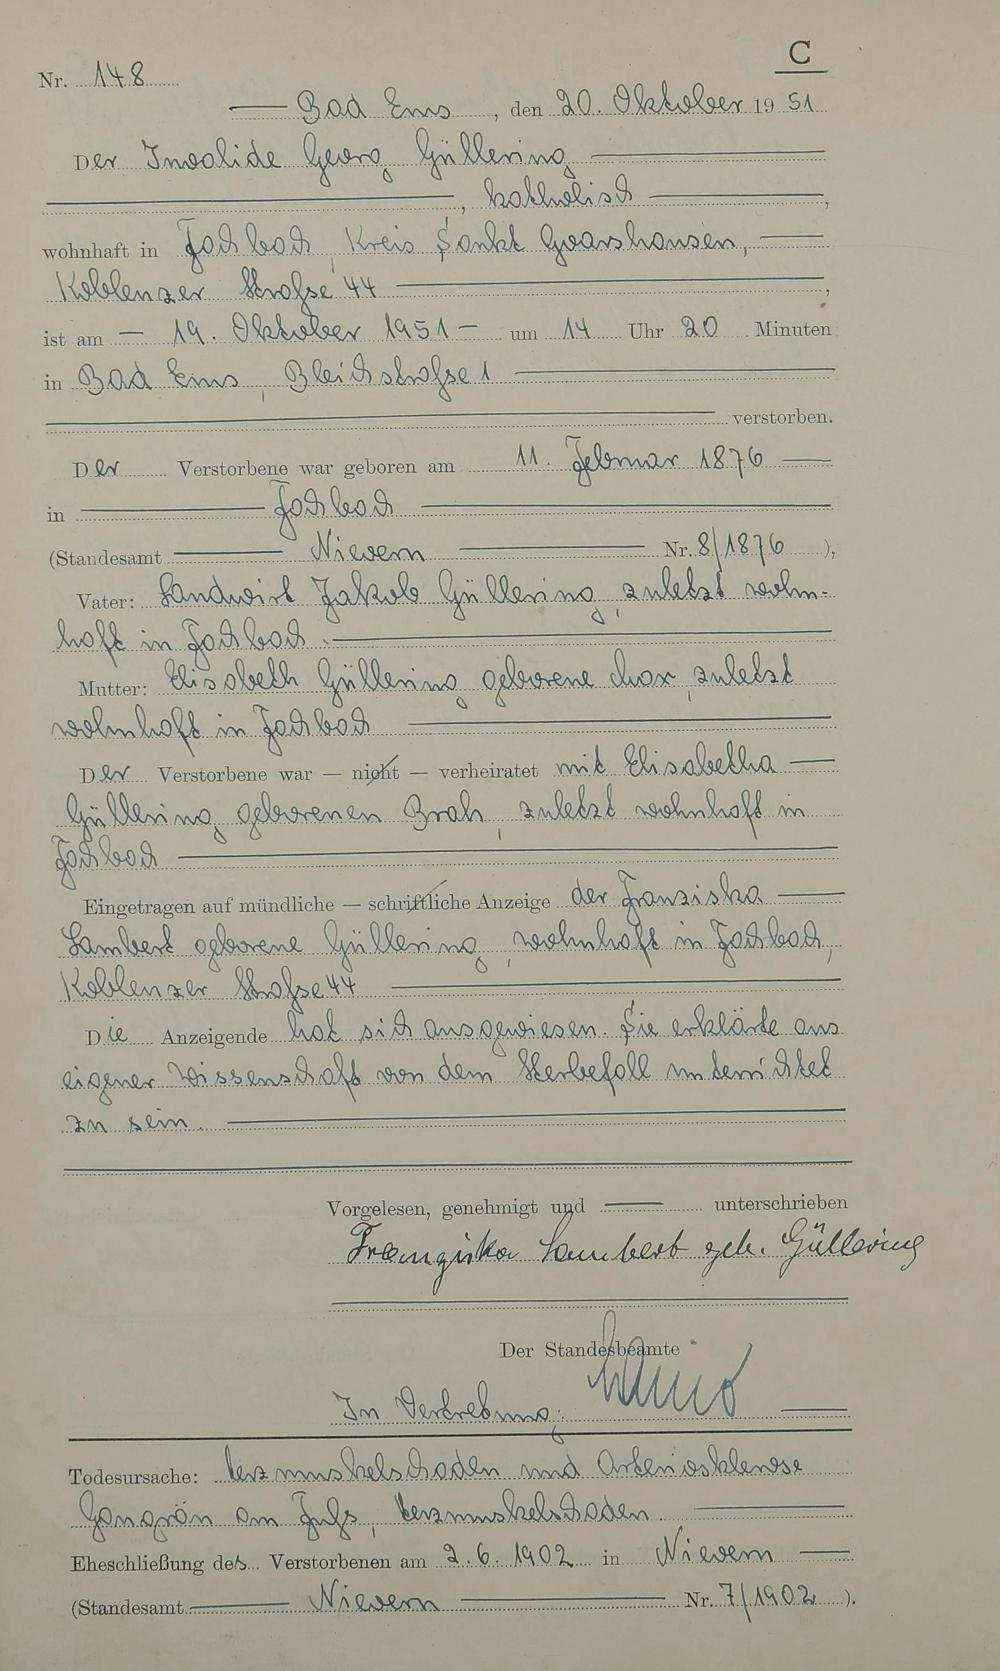 C
Nr. 148
Bad Ems, den 20. Oktober 1951
Der Invalide Georg Güllering
, katholisch,
wohnhaft in Fachbach, Kreis Sankt Goarshausen,
Koblenzer Straße 44,
ist am — 19. Oktober 1951 — um 14 Uhr 20 Minuten
in Bad Ems, Bleichstraße 1
verstorben.
Der Verstorbene war geboren am 11. Februar 1876
in Fachbach
(Standesamt Nievern Nr. 8/1876),
Vater: Landwirt Jakob Güllering, zuletzt wohn-
haft in Fachbach.
Mutter: Elisabeth Güllering geborene, zuletzt
wohnhaft in Fachbach
Der Verstorbene war — nicht — verheiratet mit Elisabetha
Güllering geborenen Brah, zuletzt wohnhaft in
Fachbach
Eingetragen auf mündliche — schriftliche Anzeige der Franziska
Lambert geborene Güllering, wohnhaft in Fachbach,
Koblenzer Straße 44
Die Anzeigende hat sich ausgewiesen. Sie erklärte aus
eigener Wissenschaft von dem Sterbefall unterrichtet
zu sein.
Vorgelesen, genehmigt und unterschrieben
Franziska Lambert geb. Güllering
Der Standesbeamte
In Vertretung:
Todesursache: Herzmuskelschaden und Arteriosklerose
Gangrän am Fuß, Herzmuskelschaden
Eheschließung des Verstorbenen am 2.6.1902 in Nievern
(Standesamt Nievern Nr. 7/1902).